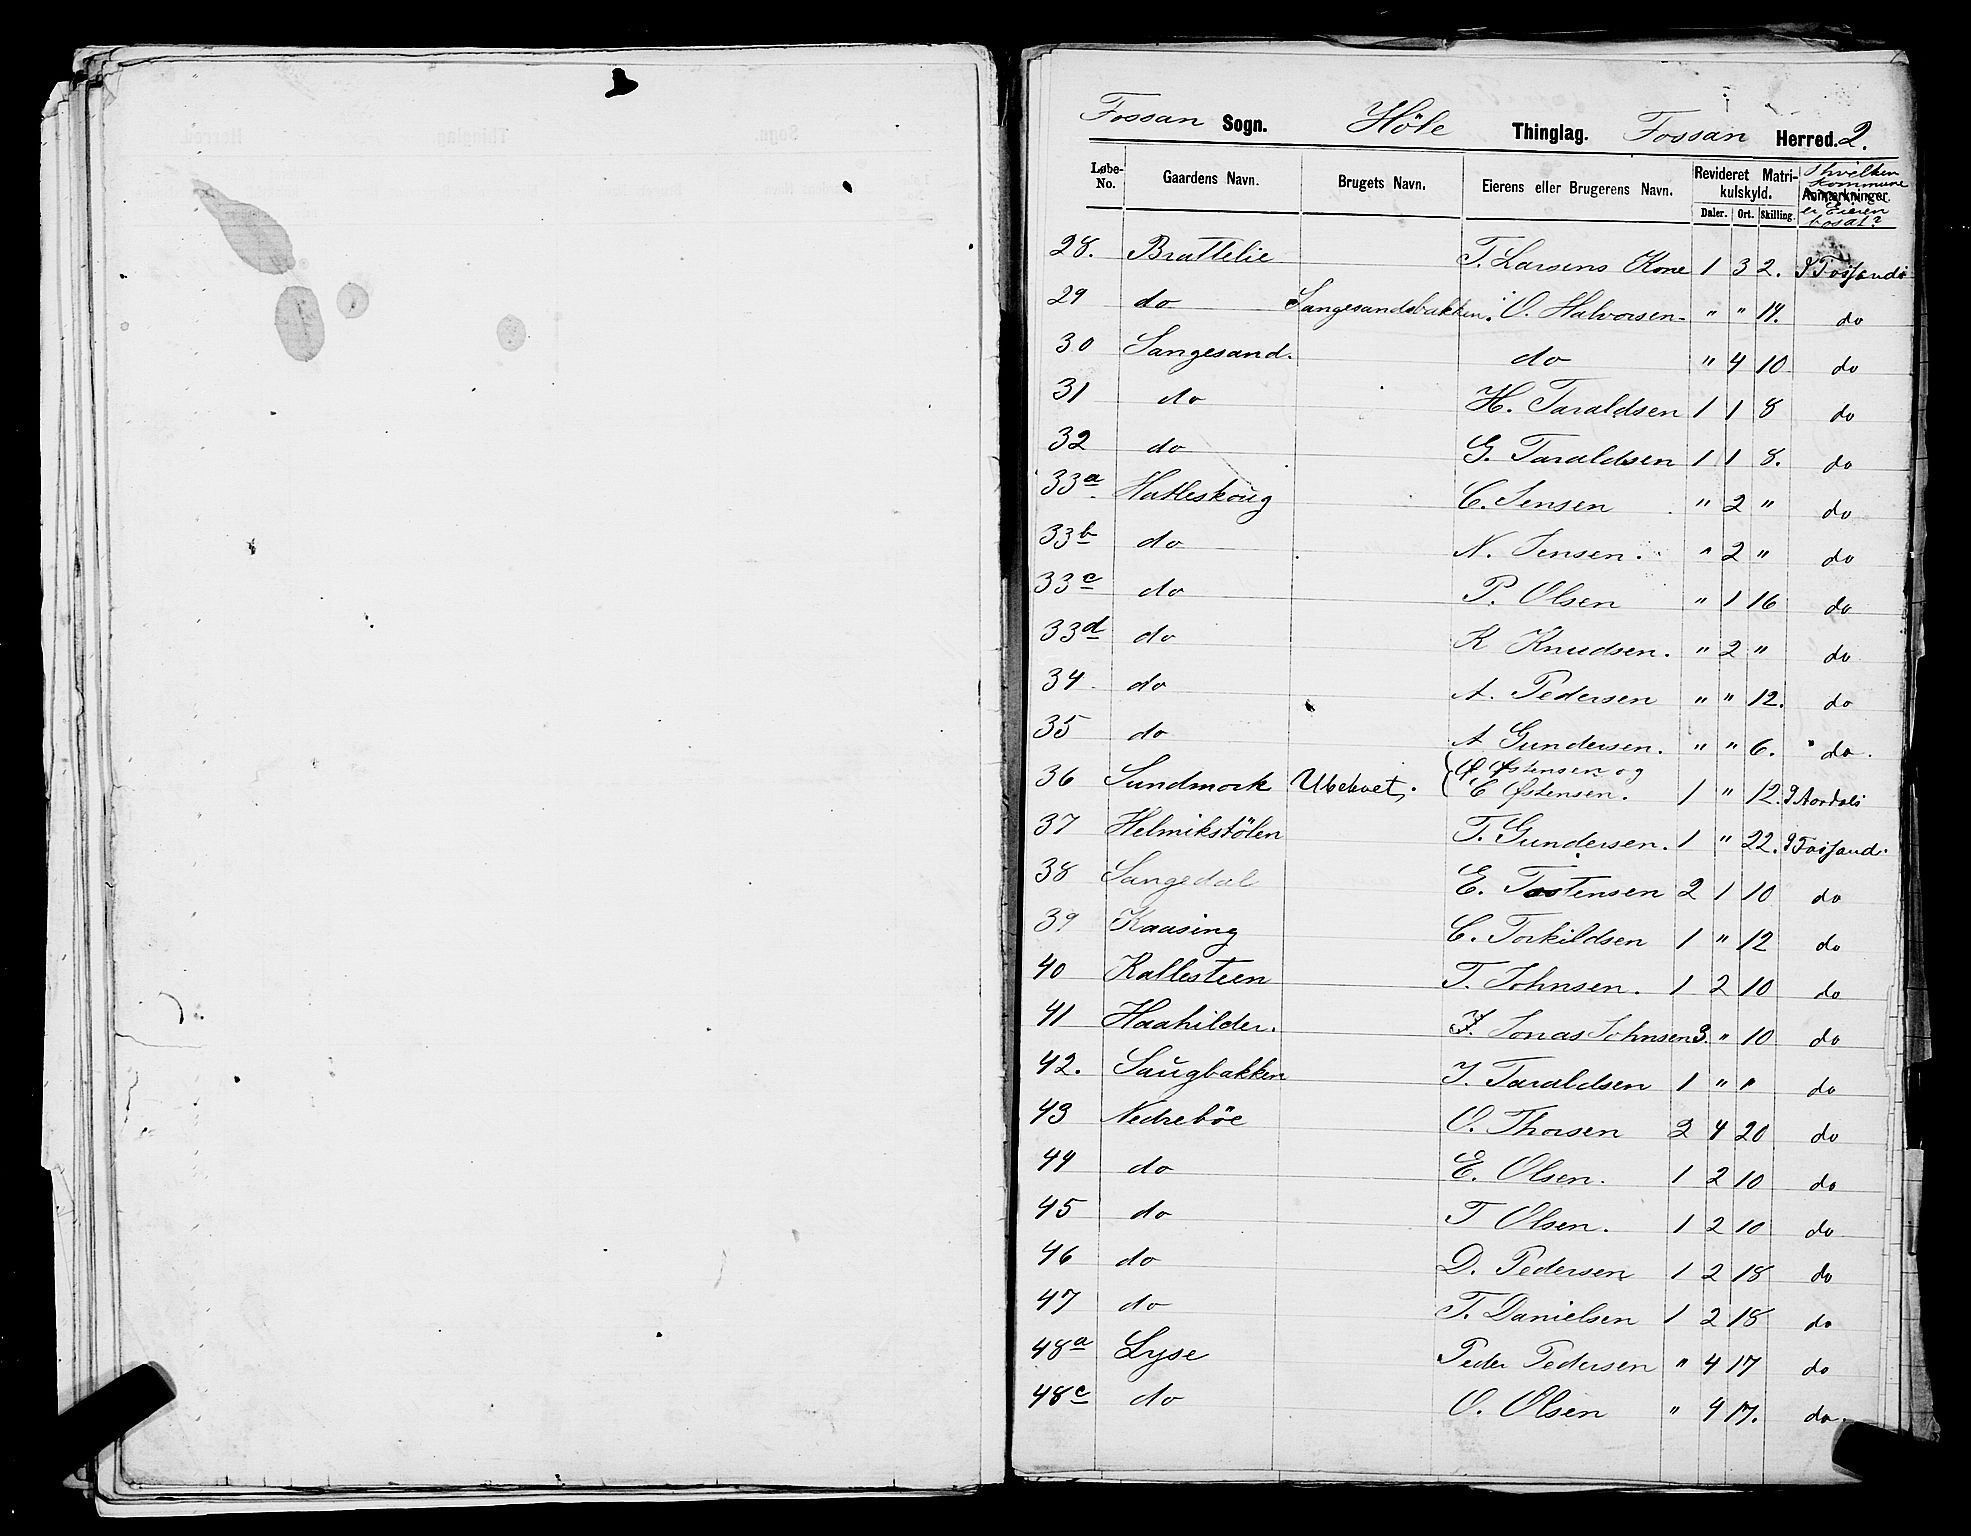 Fossan Sogn. Höle Thinglag. Fossan Herred. 2.
Løbe-No. Gaardens Navn. Brugets Navn. Eierens eller Brugerens Navn. Revideret Matrikulskyld. Daler. Ort. Skilling. Anmærkninger. I hvilken Kommune er Eieren bosat?
28. Brattelie T. Larsens Kone 1 3 2. I Fosfand
29 do Sangesandsbakken. O. Halvorsen " " 14. do
30 Sangesand. do " 4 10 do
31 do H. Taraldsen 1 1 8 do
32 do G. Taraldsen 1 1 8. do
33a Hatleskoug C. Jensen " 2 " do
33b do N. Jensen. " 2 " do
33c do P. Olsen " 1 16 do
33d do K Knudsen. " 2 " do
34 do A. Pedersen " " 12. do
35 do A Gundersen. " " 6. " do.
36 Sundmork Ubeboet. Ø Østensen og
E Østensen. 1 " 12. I Aardal
37 Helmikstölen T. Gundersen. 1 " 22. I Fosfand.
38 Sangedal E. Tostensen 2 1 10 do
39 Kaasing C. Torkildsen 1 " 12 do
40 Kallesteen T. Johnsen. 1 2 10 do
41 Haahilder. J. Jonas Johnsen 3. " 10 do
42. Saugbakken J. Taraldsen 1 " " do
43 Nedreböe O. Thorsen 2 4 20 do
44 do E. Olsen. 1 2 10 do
45 do T Olsen. 1 2 10 do
46 do D. Pedersen 1 2 18 do
47 do T. Danielsen 1 2 18 do
48a Lyse Peder Pedersen " 4 17 do
48c do O. Olsen " 4 17. do.